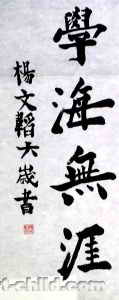 學海無涯
楊文韜六歲書
t-child.com